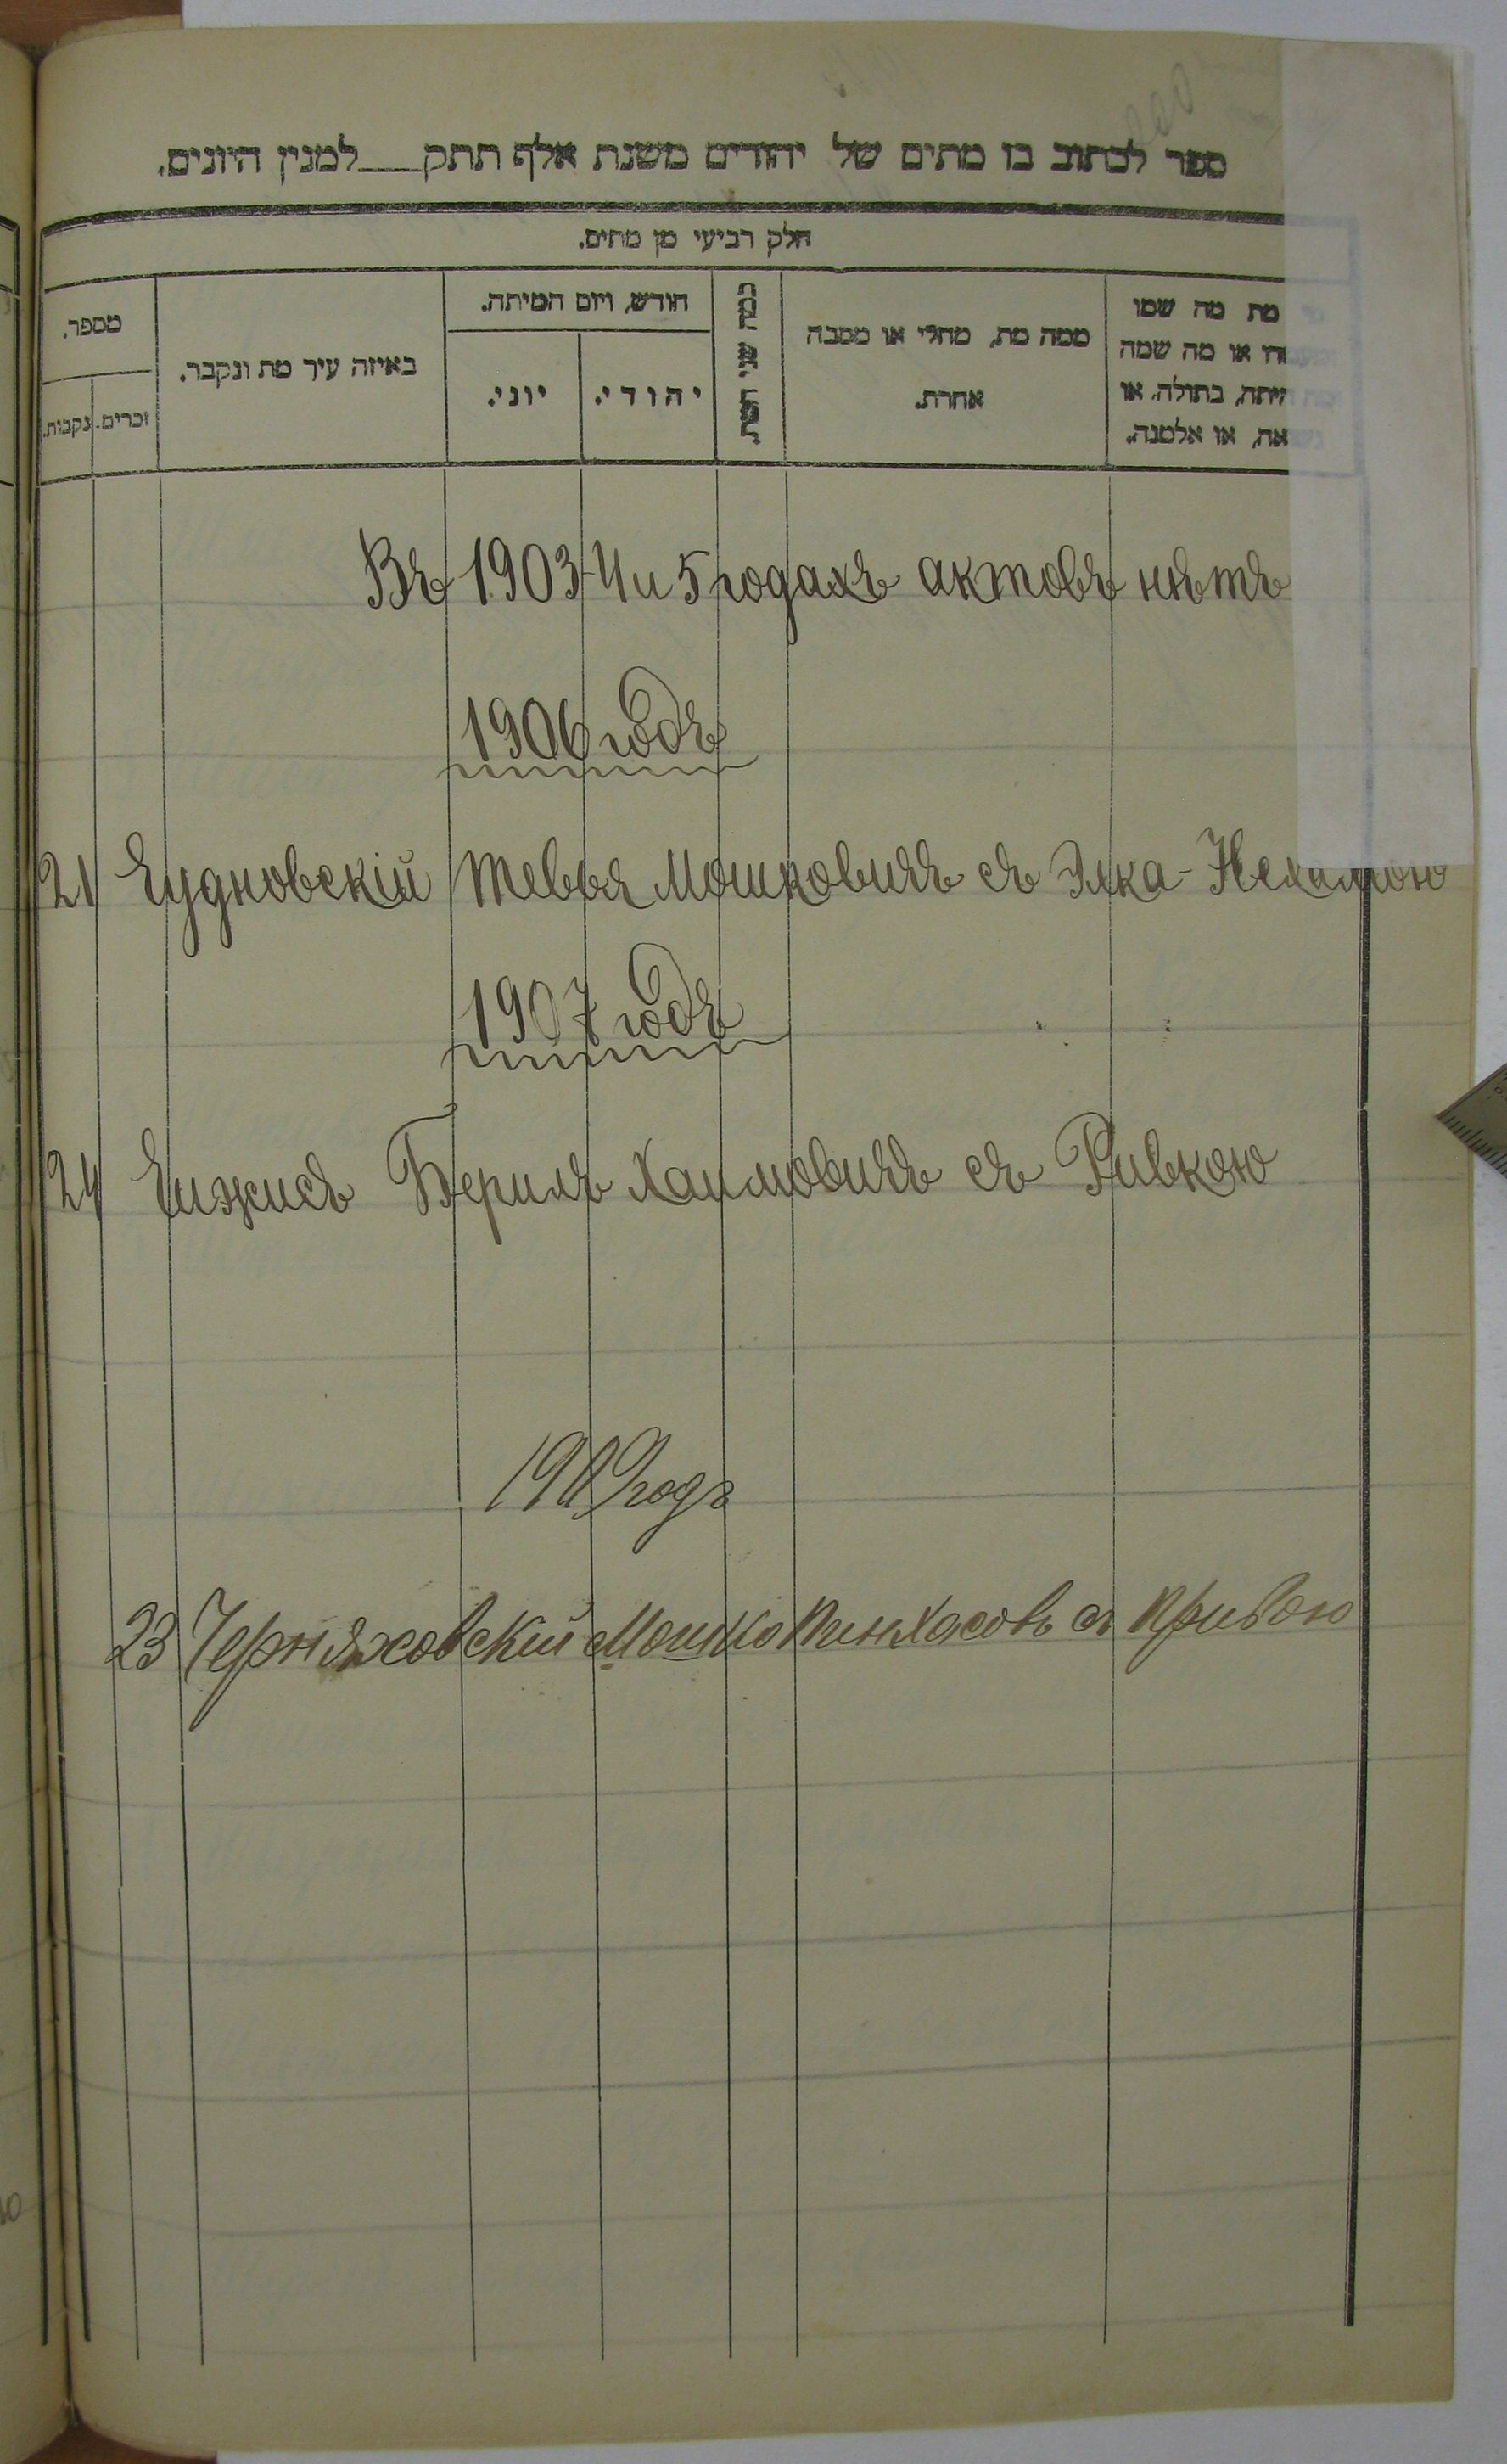 ספר לכתוב בו מתים של יהודים משנת אלף תתק___למנין היונים.
חלק רביעי מן מתים.
מספר.
זכרים.
נקבות.
באיזה עיר מת ונקבר.
חודש, ויום המיתה.
יהודי.
יוני.
ממה מת, מחלי או מסבה
אחרת.
מת מה שמו
או מה שמה
בתולה, או
או אלמנה.
Въ 1903-4 и 5 годахъ актовъ нѣтъ
1906 годъ
21 Чудновскій Тевья Мошковичъ съ Элка-Нехамою
1907 годъ
24 Чижисъ Берилъ Хаимовичъ съ Ривкою
1909 годъ
23 Черняховскій Мошко Пинхасовъ съ